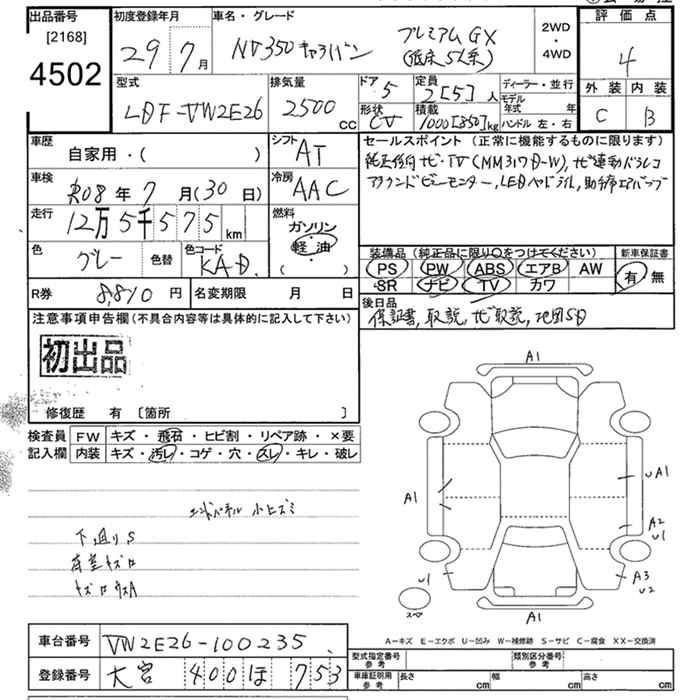 出品番号 [2168] 4502
初度登録年月 29年 7月
車名・グレード NV350キャラバン プレミアムGX (低床 5人系)
2WD・4WD
評価点 4
外装 C 内装 B
型式 LDF-VW2E26
排気量 2500 CC
ドア 5 形状 CV
定員 2[5]人
積載 1000[850]kg
ディーラー・並行
モデル年式 年
ハンドル 左・右
車歴 自家用・( )
シフト AT
車検 R08年 7月(30日)
冷房 AAC
走行 12万5千575km
燃料 ガソリン・軽油 ( )
色 グレー 色替
色コード KAD
R券 8,810円
名変期限 月 日
セールスポイント (正常に機能するものに限ります)
純正ナビ・TV(MM317D-W), ナビ連動ドラレコ
アラウンドビューモニター, LEDヘッドライト, 助手席エアバッグ
装備品 (純正品に限り○をつけてください)
PS PW ABS エアB AW
SR ナビ TV カワ
新車保証書 有・無
後日品
保証書, 取説, ナビ取説, 地図SD
注意事項申告欄(不具合内容等は具体的に記入して下さい)
初出品
修復歴 有 〔箇所 〕
検査員記入欄
FW キズ・飛石・ヒビ割・リペア跡・×要
内装 キズ・汚レ・コゲ・穴・スレ・キレ・破レ
エンドパネル 小ヒズミ
下廻りS
A1
A1
uA1
A2
u1
u1
A3
u2
スペア
A1
A-キズ E-エクボ U-凹み W-補修跡 S-サビ C-腐食 XX-交換済
車台番号 VW2E26-100235
登録番号 大宮 400 ほ 753
型式指定番号 参考
類別区分番号 参考
車庫証明用 参考 長さ cm 幅 cm 高さ cm